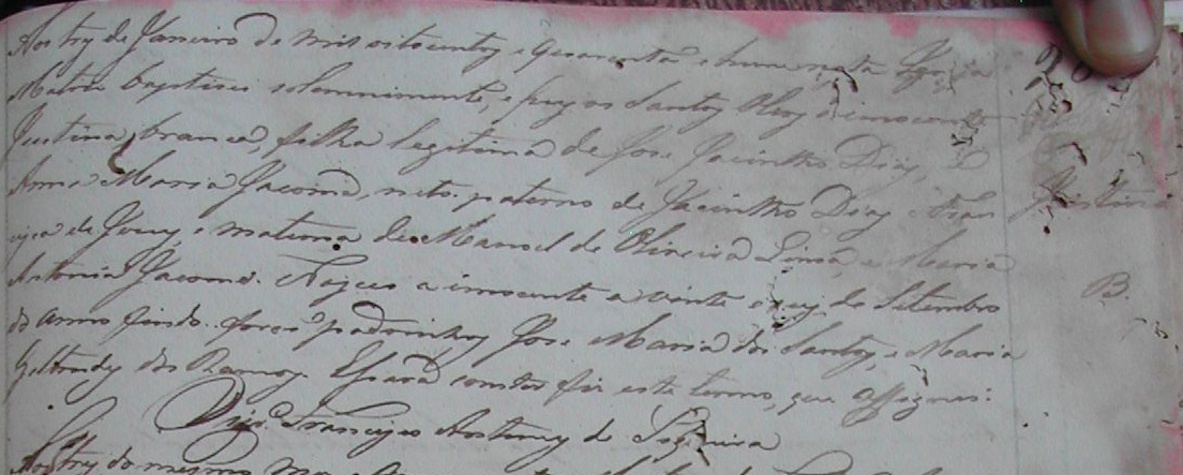 Aos trez de Janeiro de mil oitocentos e quarenta e hum nesta Igreja
Matriz baptisei solemnimente, e puz os Santos Oleos á innocente
Justina, branca, filha legitima de Jose Jacintho Dias, e
Anna Maria Jacoma, neta paterna de Jacintho Dias e Fran
cisca de Jesus, e materna de Manoel de Oliveira Lima, e Maria
Antonia Jacoma. Nasceo a innocente a vinte e seis de Setembro
do anno findo. forão padrinhos Jose Maria dos Santos, e Maria
Geltrudes dos Ramos. E para constar fiz este termo, que assignei:
Vigro. Francisco
Aos trez do mesmo
Justina
B.